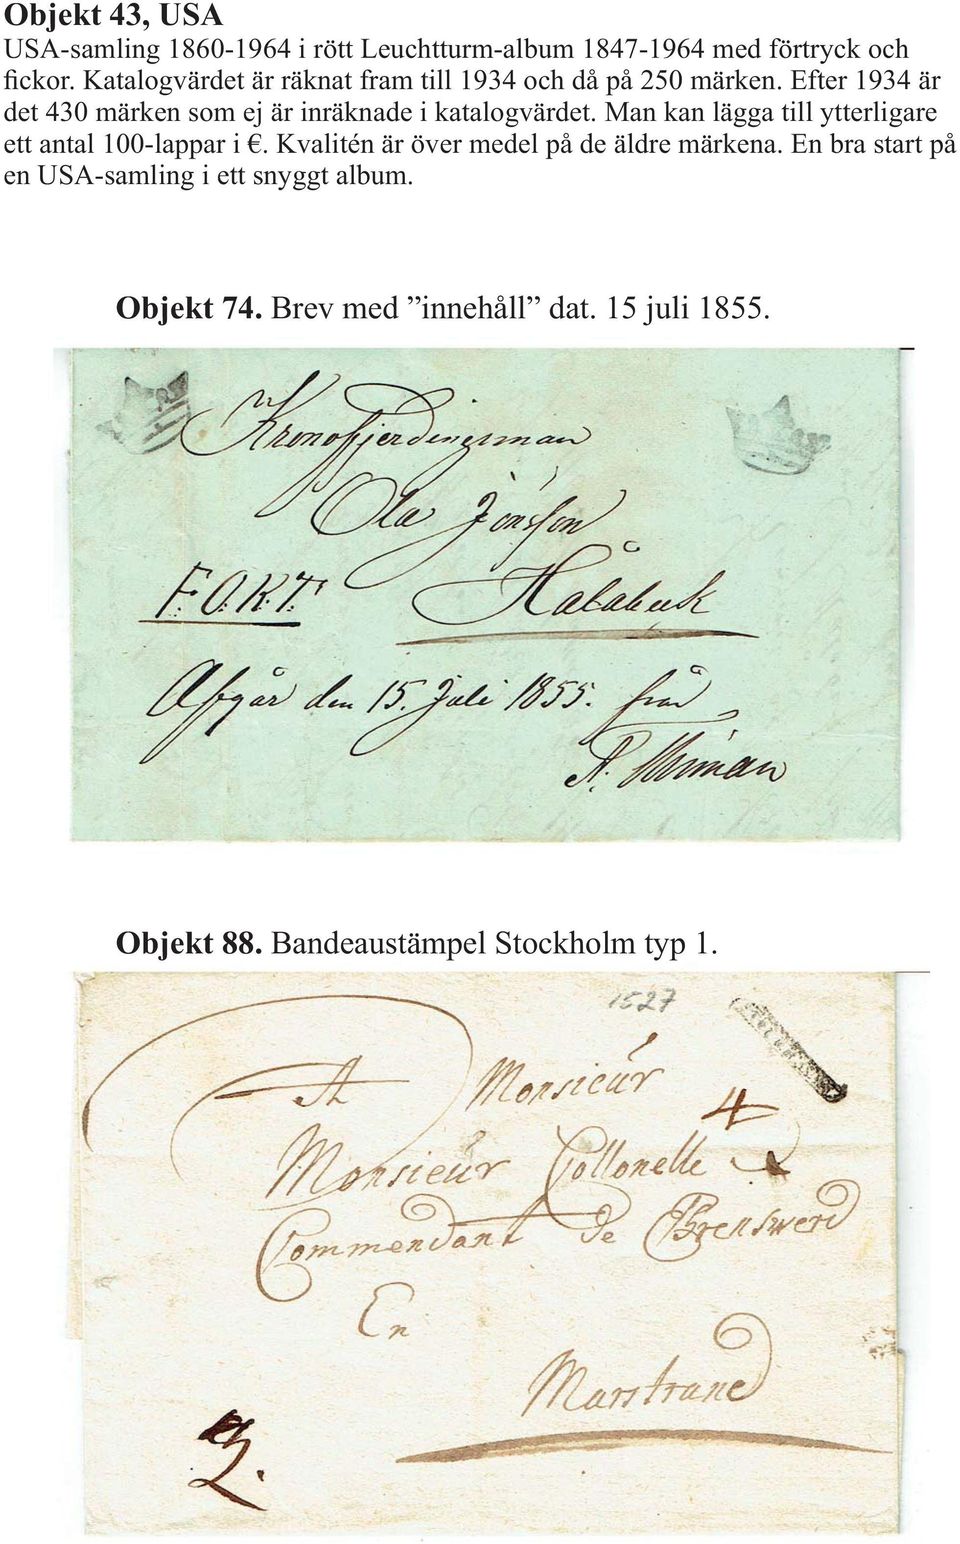 Objekt 43, USA
USA-samling 1860-1964 i rött Leuchtturm-album 1847-1964 med förtryck och
fickor. Katalogvärdet är räknat fram till 1934 och då på 250 märken. Efter 1934 är
det 430 märken som ej är inräknade i katalogvärdet. Man kan lägga till ytterligare
ett antal 100-lappar i €. Kvalitén är över medel på de äldre märkena. En bra start på
en USA-samling i ett snyggt album.
Objekt 74. Brev med ”innehåll” dat. 15 juli 1855.
Kronofjerdingsman
Ola Jönsson
F.O.R.T.
Afgår den 15. Juli 1855. från
Objekt 88. Bandeaustämpel Stockholm typ 1.
1527
A Monsieur
4
Monsieur Collonelle
Commendant de
En
Marstrand